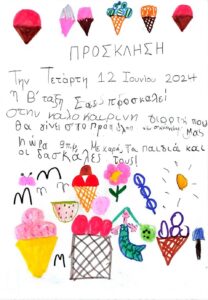 ΠΡΟΣΚΛΗΣΗ
Την Τετάρτη 12 Ιουνίου 2024
η Β΄ταξη Σας προσκαλεί
στην καλοκαιρινή γιορτή που
θα γίνει στο προαύλιο του σχολείου μας
Ώρα 9πμ. Με χαρά, Τα παιδιά και
οι δασκάλες τους!